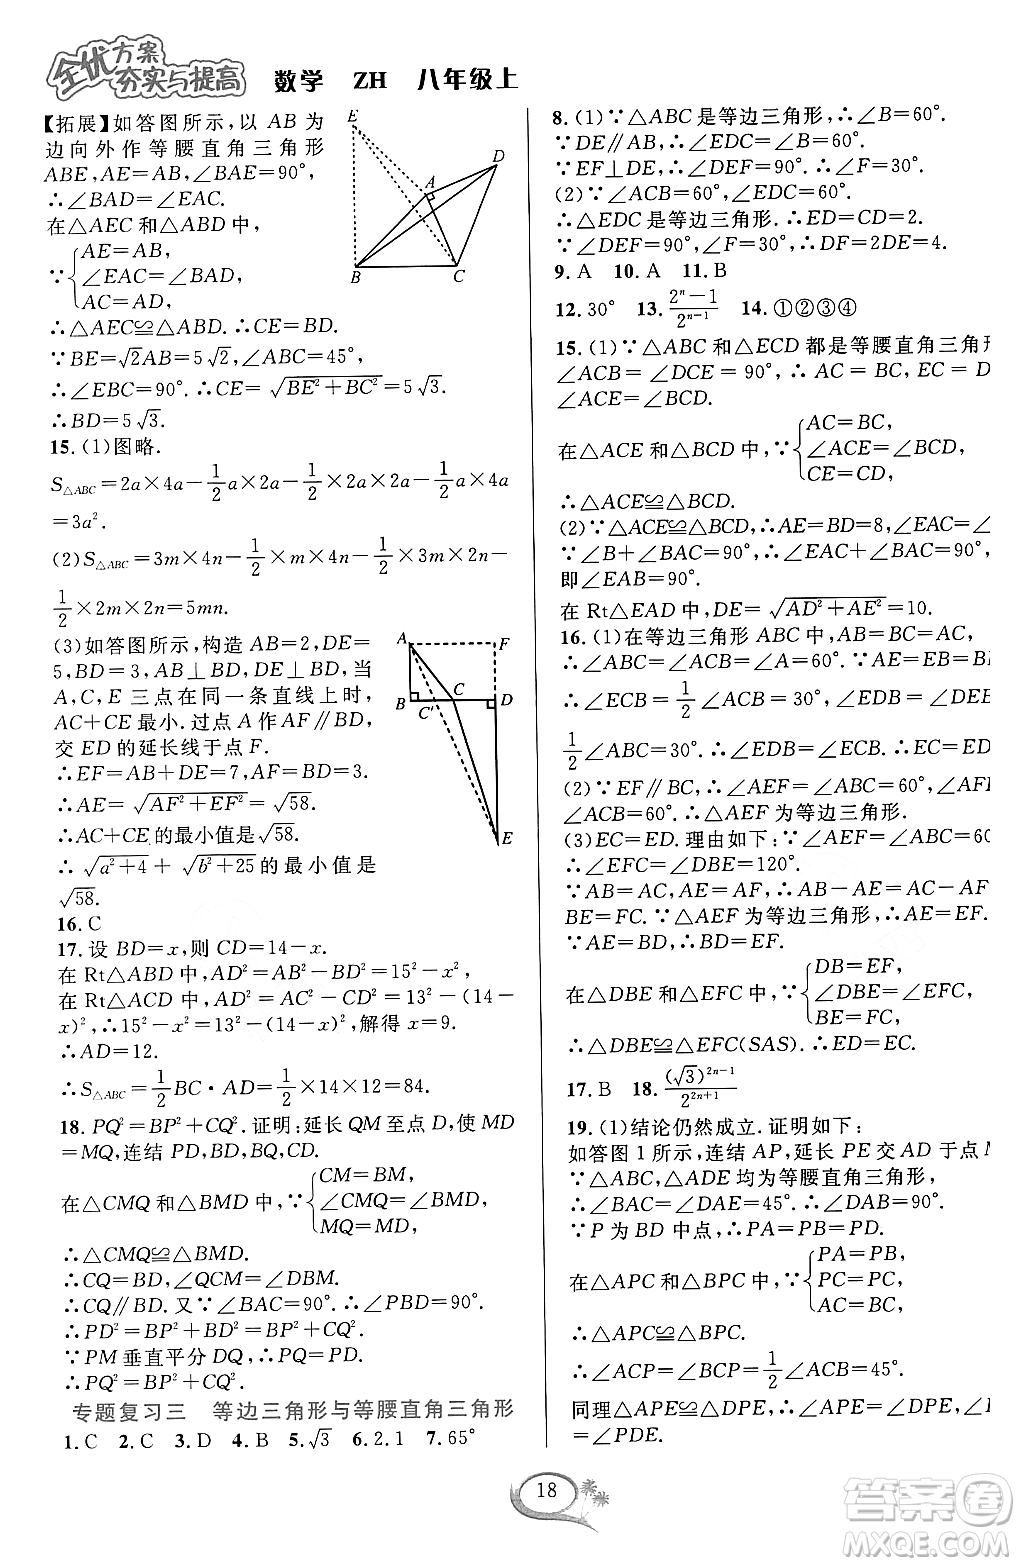 全优方案
夯实与提高 数学 ZH 八年级上
【拓展】如答图所示,以 AB 为
边向外作等腰直角三角形
ABE,AE=AB,∠BAE=90°,
∴∠BAD=∠EAC.
在△AEC 和△ABD 中,
AE=AB,
∵ ∠EAC=∠BAD,
AC=AD,
∴△AEC≌△ABD. ∴CE=BD.
∵BE=√2AB=5√2,∠ABE=45°,
∴∠EBC=90°.∴CE=√(BE²+BC²)=5√3.
∴BD=5√3.
15.(1)图略.
S△ABC=2a×4a-1/2a×2a-1/2×2a×2a-1/2a×4a
=3a².
(2)S△ABC=3m×4n-1/2×m×4n-1/2×3m×2n-
1/2×2m×2n=5mn.
(3)如答图所示,构造 AB=2,DE=
5,BD=3,AB⊥BD,DE⊥BD,当
A,C,E 三点在同一条直线上时,
AC+CE 最小.过点 A 作 AF∥BD,
交 ED 的延长线于点 F.
∴EF=AB+DE=7,AF=BD=3.
∴AE=√(AF²+EF²)=√58.
∴AC+CE 的最小值是√58.
∴√(a²+4)+√(b²+25)的最小值是
√58.
16.C
17.设 BD=x,则 CD=14-x.
在 Rt△ABD 中,AD²=AB²-BD²=15²-x²,
在 Rt△ACD 中,AD²=AC²-CD²=13²-(14-
x)²,∴15²-x²=13²-(14-x)²,解得 x=9.
∴AD=12.
∴S△ABC=1/2BC·AD=1/2×14×12=84.
18.PQ²=BP²+CQ².证明:延长 QM 至点 D,使 MD
=MQ,连结 PD,BD,PQ,CQ.
CM=BM,
在△CMQ 和△BMD 中,∵ ∠CMQ=∠BMD,
MQ=MD,
∴△CMQ≌△BMD.
∴CQ=BD,∠QCM=∠DBM.
∴CQ∥BD.又∵∠BAC=90°,∴∠PBD=90°.
∴PD²=BP²+BD²=BP²+CQ².
∵PM 垂直平分 DQ,∴PQ=PD.
∴PQ²=BP²+CQ².
专题复习三 等边三角形与等腰直角三角形
1.C 2.C 3.D 4.B 5.√3 6.2.1 7.65°
8.(1)∵△ABC 是等边三角形,∴∠B=60°.
∵DE∥AB,∴∠EDC=∠B=60°.
∵EF⊥DE,∴∠DEF=90°.∴∠F=30°.
(2)∵∠ACB=60°,∠EDC=60°.
∴△EDC 是等边三角形.∴ED=CD=2.
∵∠DEF=90°,∠F=30°,∴DF=2DE=4.
9.A 10.A 11.B
12.30° 13.(2ⁿ-1)/2ⁿ⁻¹ 14.①②③④
15.(1)∵△ABC 和△ECD 都是等腰直角三角形
∠ACB=∠DCE=90°,∴AC=BC,EC=D
∠ACE=∠BCD.
AC=BC,
在△ACE 和△BCD 中,∵ ∠ACE=∠BCD,
CE=CD,
∴△ACE≌△BCD.
(2)∵△ACE≌△BCD,∴AE=BD=8,∠EAC=∠
∵∠B+∠BAC=90°,∴∠EAC+∠BAC=90°,
即∠EAB=90°.
在 Rt△EAD 中,DE=√(AD²+AE²)=10.
16.(1)在等边三角形 ABC 中,AB=AC,
∴∠ABC=∠ACB=∠A=60°.∵AE=EB=B
∴∠ECB=1/2∠ACB=30°,∠EDB=∠DEB=
1/2∠ABC=30°.∴∠EDB=∠ECB.∴EC=ED
(2)∵EF∥BC,∴∠AEF=∠ABC=60°,∠AFE
∠ACB=60°.∴△AEF 为等边三角形.
(3)EC=ED.理由如下:∵∠AEF=∠ABC=60
∴∠EFC=∠DBE=120°.
∵AB=AC,AE=AF,∴AB-AE=AC-AF,
BE=FC.∵△AEF 为等边三角形,∴AE=EF.
∵AE=BD,∴DB=EF.
DB=EF,
在△DBE 和△EFC 中,∵ ∠DBE=∠EFC,
BE=FC,
∴△DBE≌△EFC(SAS).∴ED=EC.
17.B 18.(√3)²ⁿ⁻¹/2²ⁿ⁺¹
19.(1)结论仍然成立.证明如下:
如答图 1 所示,连结 AP,延长 PE 交 AD 于点 M
∵△ABC,△ADE 均为等腰直角三角形,
∴∠BAC=∠DAE=45°.∴∠DAB=90°.
∵P 为 BD 中点,∴PA=PB=PD.
PA=PB,
在△APC 和△BPC 中,∵ PC=PC,
AC=BC,
∴△APC≌△BPC.
∴∠ACP=∠BCP=1/2∠ACB=45°.
同理△APE≌△DPE,∴∠APE=∠DPE,∠AEP
=∠PED.
E
D
A
B
C
A
F
B
C′
C
D
E
18
答案圈
MXQE.COM